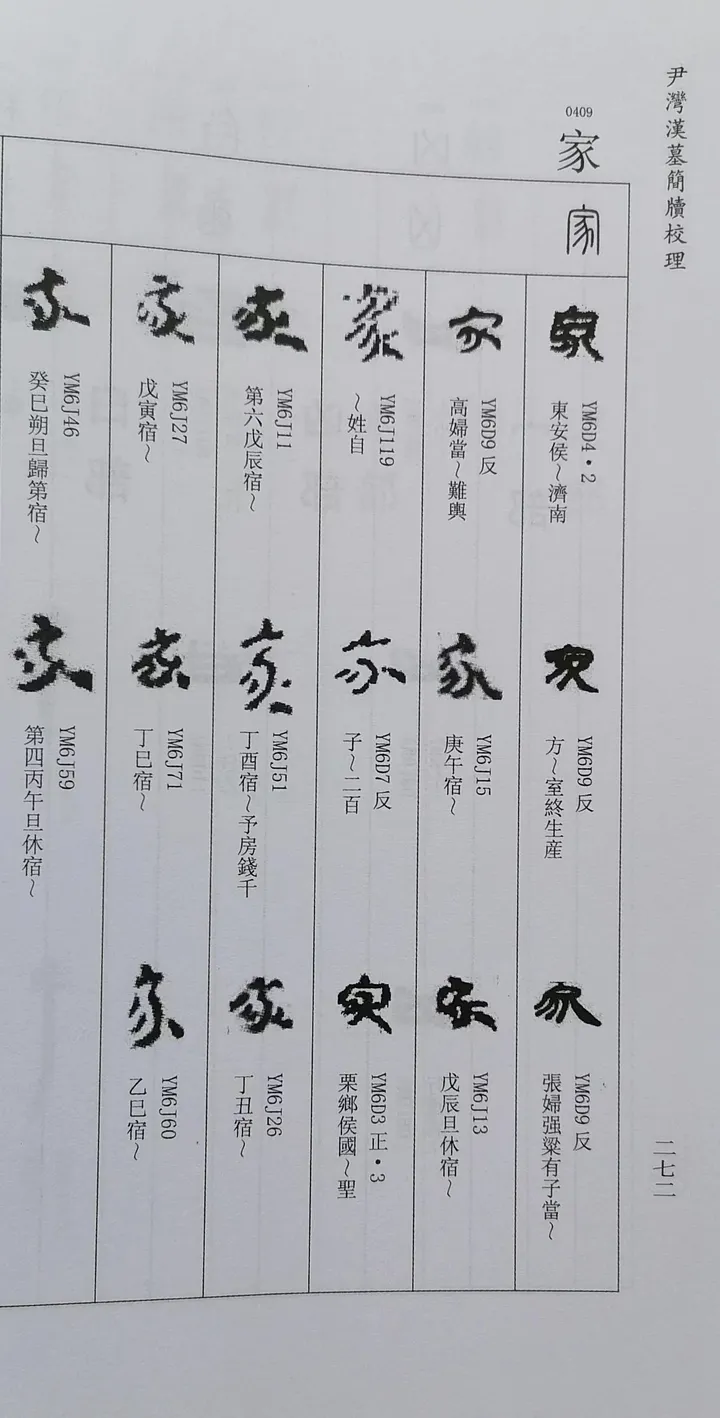 尹灣漢墓簡牘校理
二七二
0409
家
家
YM6D4·2
東安侯～濟南
YM6D9 反
方～室終生産
YM6D9 反
張婦强粱有子當～
YM6D9 反
高婦當～難輿
YM6J15
庚午宿～
YM6J13
戊辰旦休宿～
YM6J119
～姓自
YM6D7 反
子～二百
YM6D3 正·3
栗鄉侯國～聖
YM6J11
第六戊辰宿～
YM6J51
丁酉宿～予房錢千
YM6J26
丁丑宿～
YM6J27
戊寅宿～
YM6J71
丁巳宿～
YM6J60
乙巳宿～
YM6J46
癸巳朔旦歸第宿～
YM6J59
第四丙午旦休宿～